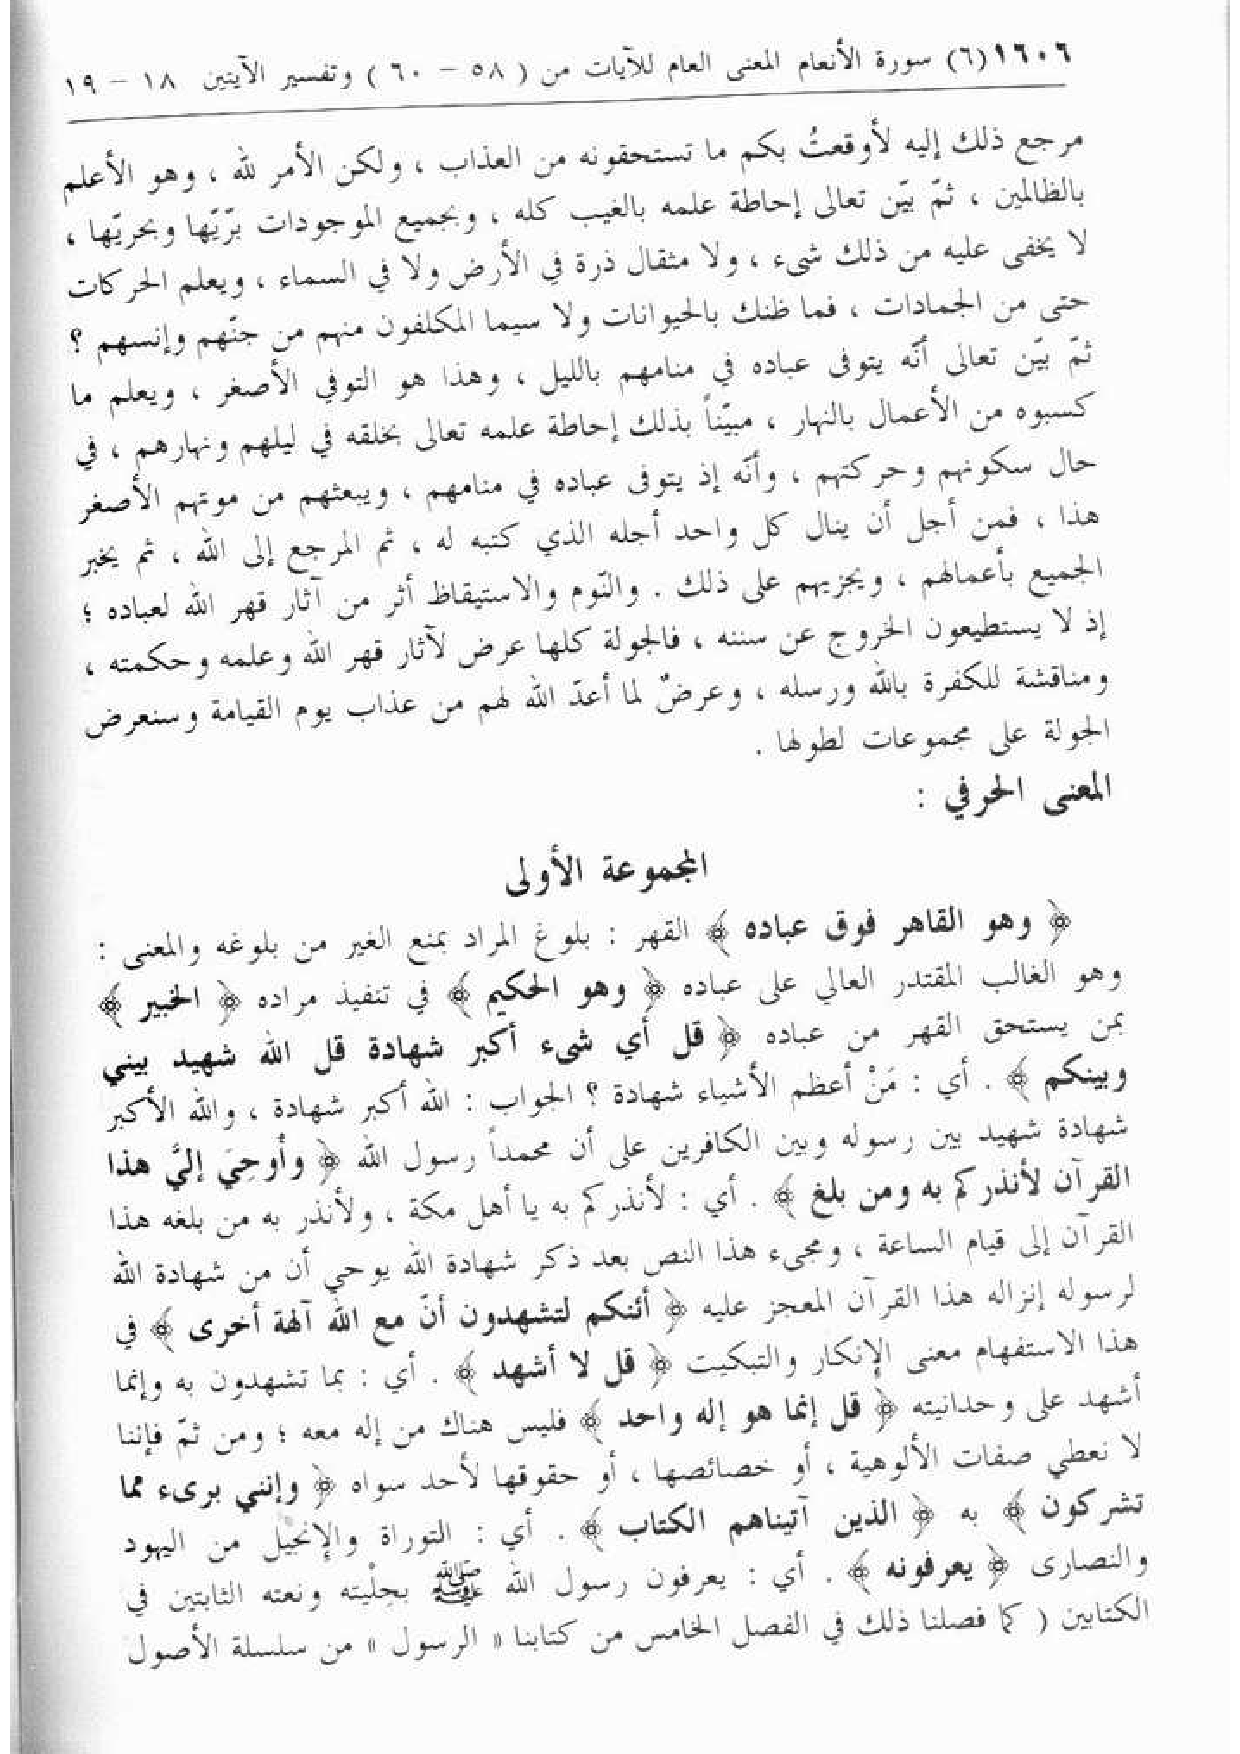 ١٦٠٦ (٦) سورة الأنعام المعنى العام للآيات من ( ٥٨ – ٦٠ ) وتفسير الآيتين ١٨ – ١٩
مرجع ذلك إليه لأوقعتُ بكم ما تستحقونه من العذاب ، ولكن الأمر لله ، وهو الأعلم
بالظالمين ، ثمّ بيّن تعالى إحاطة علمه بالغيب كله ، وبجميع الموجودات برّيّها وبحريّها ،
لا يخفى عليه من ذلك شىء ، ولا مثقال ذرة في الأرض ولا في السماء ، ويعلم الحركات
حتى من الجمادات ، فما ظنك بالحيوانات ولا سيما المكلفون منهم من جنّهم وإنسهم ؟
ثمّ بيّن تعالى أنّه يتوفى عباده في منامهم بالليل ، وهذا هو التوفي الأصغر ، ويعلم ما
كسبوه من الأعمال بالنهار ، مبيّناً بذلك إحاطة علمه تعالى بخلقه في ليلهم ونهارهم ، في
حال سكونهم وحركتهم ، وأنّه إذ يتوفى عباده في منامهم ، ويبعثهم من موتهم الأصغر
هذا ، فمن أجل أن ينال كل واحد أجله الذي كتبه له ، ثم المرجع إلى الله ، ثم يخبر
الجميع بأعمالهم ، ويجزيهم على ذلك . والنّوم والاستيقاظ أثر من آثار قهر الله لعباده ؛
إذ لا يستطيعون الخروج عن سننه ، فالجولة كلها عرض لآثار قهر الله وعلمه وحكمته ،
ومناقشة للكفرة بالله ورسله ، وعرضٌ لما أعدّ الله لهم من عذاب يوم القيامة وسنعرض
الجولة على مجموعات لطولها .
المعنى الحرفي :
المجموعة الأولى
﴿ وهو القاهر فوق عباده ﴾ القهر : بلوغ المراد بمنع الغير من بلوغه والمعنى :
وهو الغالب المقتدر العالي على عباده ﴿ وهو الحكيم ﴾ في تنفيذ مراده ﴿ الخبير ﴾
بمن يستحق القهر من عباده ﴿ قل أي شىء أكبر شهادة قل الله شهيد بيني
وبينكم ﴾ . أي : مَنْ أعظم الأشياء شهادة ؟ الجواب : الله أكبر شهادة ، والله الأكبر
شهادة شهيد بين رسوله وبين الكافرين على أن محمداً رسول الله ﴿ وأُوحِيَ إليَّ هذا
القرآن لأنذركم به ومن بلغ ﴾ . أي : لأنذركم به يا أهل مكة ، ولأنذر به من بلغه هذا
القرآن إلى قيام الساعة ، ومجىء هذا النص بعد ذكر شهادة الله يوحي أن من شهادة الله
لرسوله إنزاله هذا القرآن المعجز عليه ﴿ أئنكم لتشهدون أنّ مع الله آلهة أخرى ﴾ في
هذا الاستفهام معنى الإنكار والتبكيت ﴿ قل لا أشهد ﴾ . أي : بما تشهدون به وإنما
أشهد على وحدانيته ﴿ قل إنما هو إله واحد ﴾ فليس هناك من إله معه ؛ ومن ثمّ فإننا
لا نعطي صفات الألوهية ، أو خصائصها ، أو حقوقها لأحد سواه ﴿ وإنني برىء مما
تشركون ﴾ به ﴿ الذين آتيناهم الكتاب ﴾ . أي : التوراة والإنجيل من اليهود
والنصارى ﴿ يعرفونه ﴾ . أي : يعرفون رسول الله ﷺ بحِلْيته ونعته الثابتين في
الكتابين ( كما فصلنا ذلك في الفصل الخامس من كتابنا « الرسول » من سلسلة الأصول